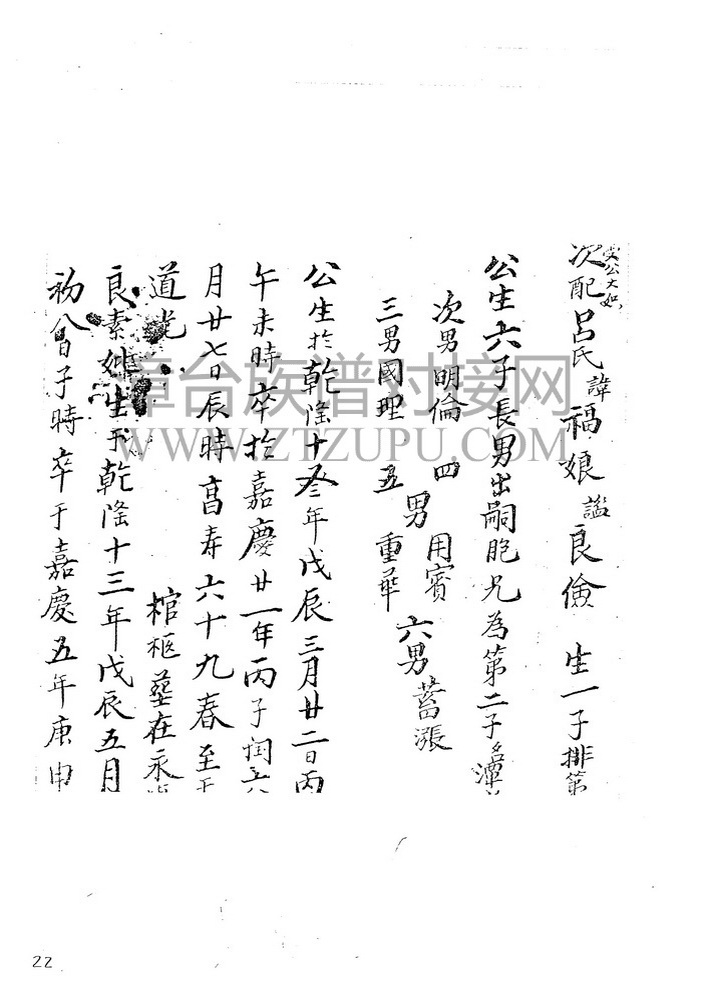 次配呂氏諱福娘謚良儉 生一子排第
公生六子長男出嗣胞兄為第二子名潭
次男明倫 四男用賓 六男蓄漲
三男國理 五男重華
公生於乾隆十叁年戊辰三月廿二日丙
午未時卒於嘉慶廿一年丙子閏六
月廿七日辰時享寿六十九春至于
道光 棺柩塟在永
良素妣生于乾隆十三年戊辰五月
初八日子時卒于嘉慶五年庚申
漳台族谱对接网
WWW.ZTZUPU.COM
22